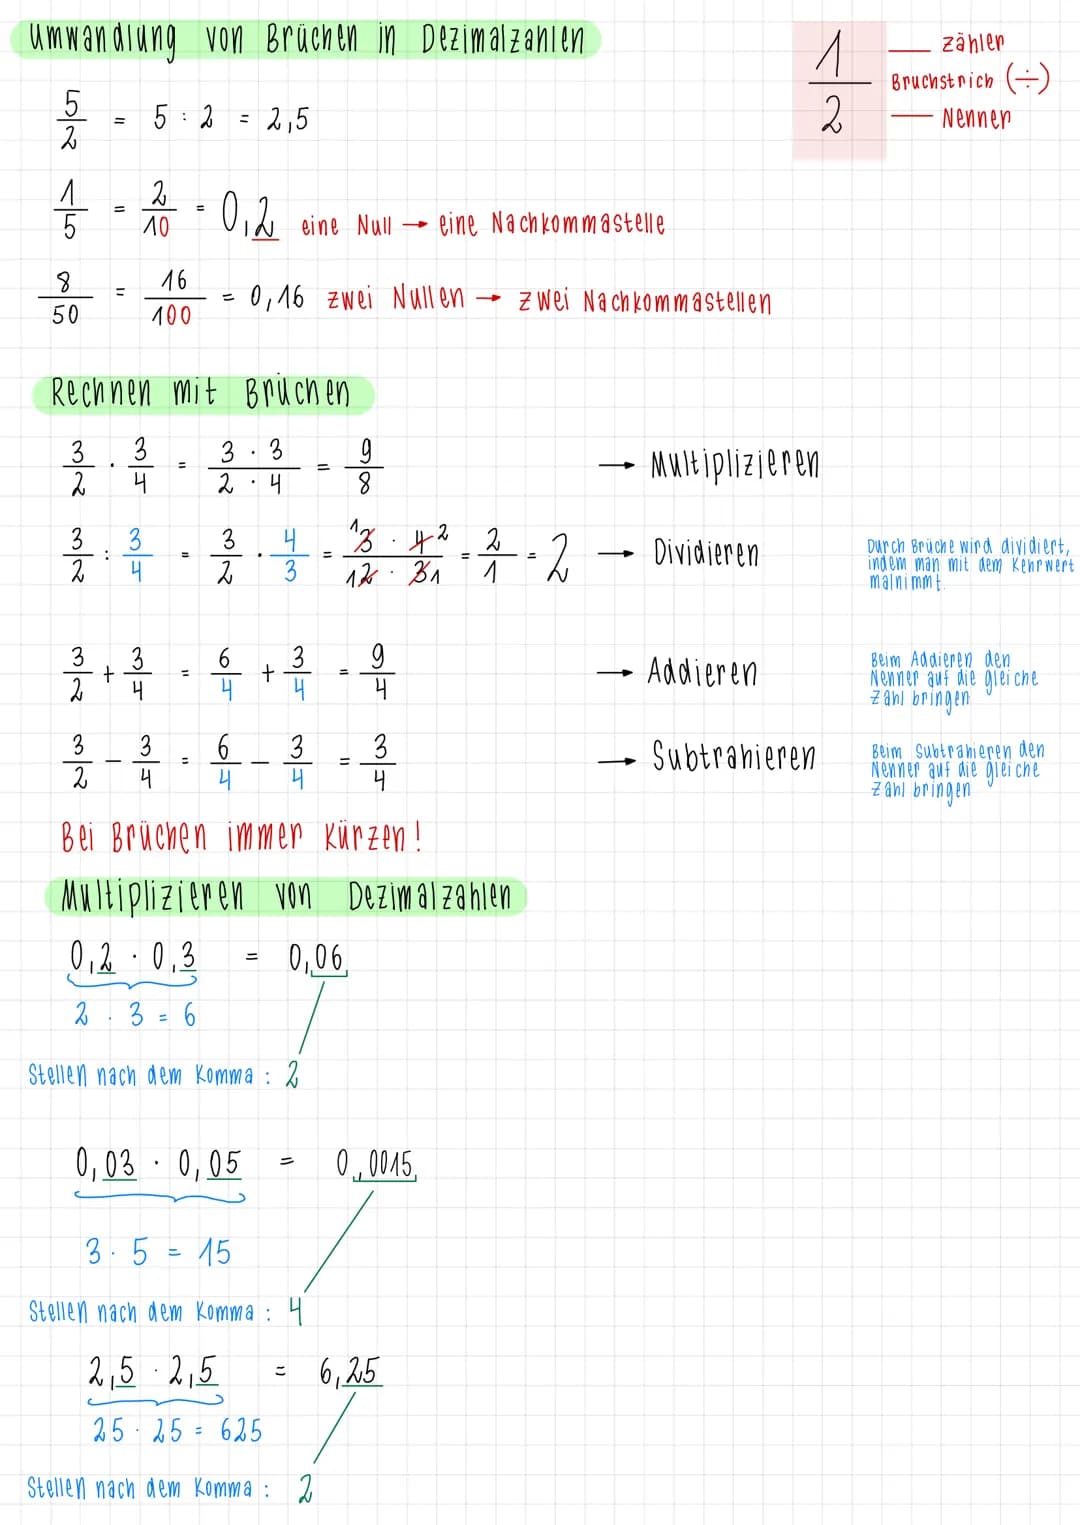 Umwandlung von Brüchen in Dezimalzahlen
1/2
Zähler
Bruchstrich (÷)
Nenner
5/2 = 5 : 2 = 2,5
1/5 = 2/10 = 0,2 eine Null → eine Nachkommastelle
8/50 = 16/100 = 0,16 zwei Nullen → zwei Nachkommastellen
Rechnen mit Brüchen
3/2 · 3/4 = 3 · 3/2 · 4 = 9/8 → Multiplizieren
3/2 : 3/4 = 3/2 · 4/3 = 1 3 · 4 2/1 2 · 3 1 = 2/1 = 2 → Dividieren
Durch Brüche wird dividiert,
indem man mit dem Kehrwert
malnimmt.
3/2 + 3/4 = 6/4 + 3/4 = 9/4 → Addieren
Beim Addieren den
Nenner auf die gleiche
Zahl bringen
3/2 - 3/4 = 6/4 - 3/4 = 3/4 → Subtrahieren
Beim Subtrahieren den
Nenner auf die gleiche
Zahl bringen
Bei Brüchen immer kürzen!
Multiplizieren von Dezimalzahlen
0,2 · 0,3 = 0,06
2 · 3 = 6
Stellen nach dem Komma : 2
0,03 · 0,05 = 0,0015
3 · 5 = 15
Stellen nach dem Komma : 4
2,5 · 2,5 = 6,25
25 · 25 = 625
Stellen nach dem Komma : 2